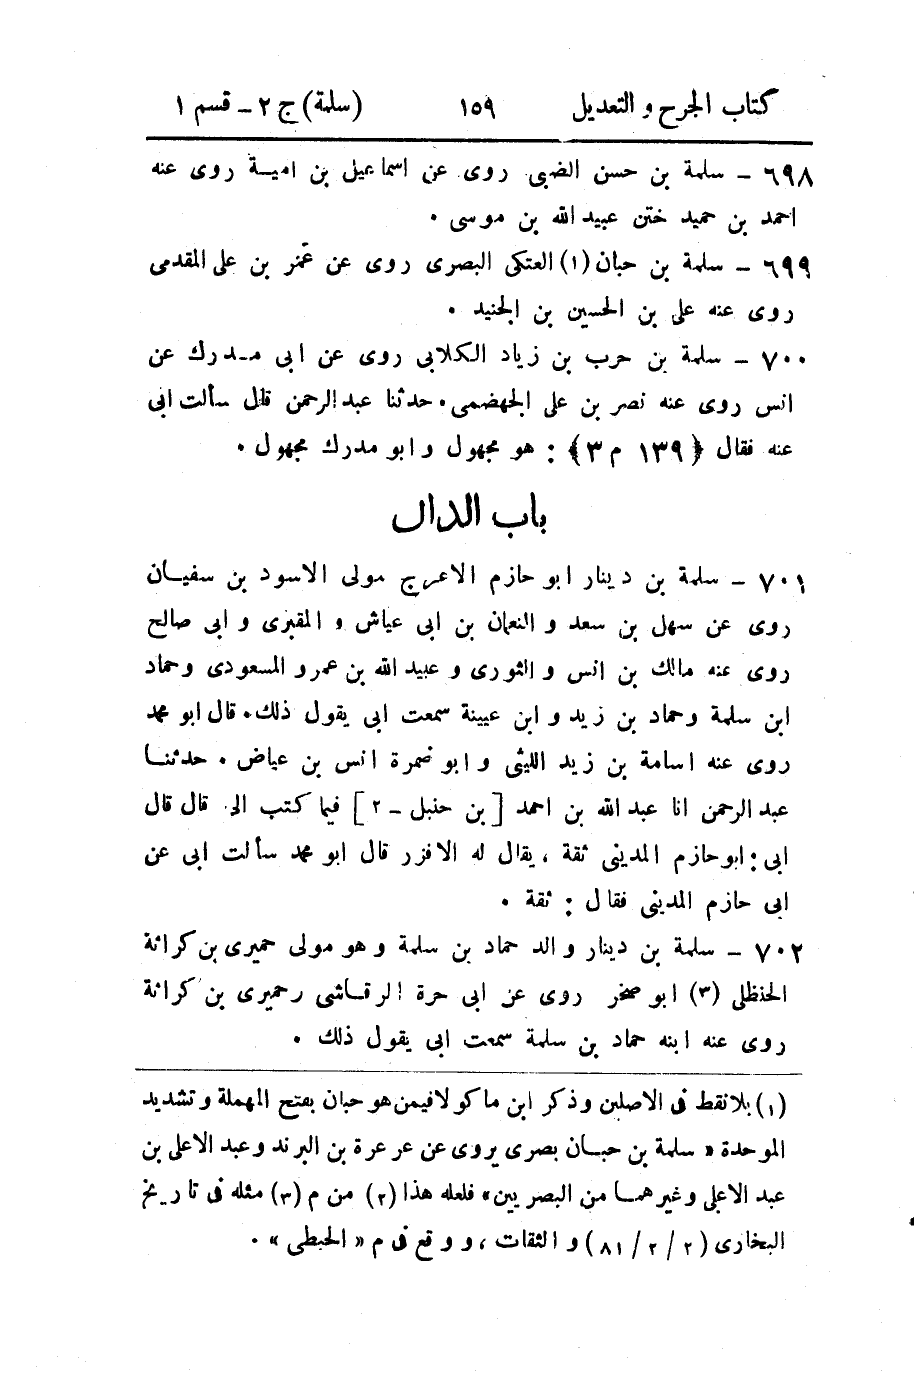 كتاب الجرح و التعديل ١٥٩ (سلمة) ج ٢ - قسم ١
٦٩٨ - سلمة بن حسن الضبي روى عن اسماعيل بن امية روى عنه
احمد بن حميد ختن عبيد الله بن موسى .
٦٩٩ - سلمة بن حبان (١) العتكى البصرى روى عن عمر بن على المقدمى
روى عنه على بن الحسين بن الجنيد .
٧٠٠ - سلمة بن حرب بن زياد الكلابى روى عن ابى مدرك عن
انس روى عنه نصر بن على الجهضمى . حدثنا عبد الرحمن قال سألت ابى
عنه فقال ﴿١٣٩ م ٣﴾ : هو مجهول و ابو مدرك مجهول .
باب الدال
٧٠١ - سلمة بن دينار ابو حازم الاعرج مولى الاسود بن سفيان
روى عن سهل بن سعد و النعمان بن ابى عياش و المقبرى و ابى صالح
روى عنه مالك بن انس و الثورى و عبيد الله بن عمر و المسعودى وحماد
ابن سلمة وحماد بن زيد و ابن عيينة سمعت ابى يقول ذلك . قال ابو محمد
روى عنه اسامة بن زيد الليثى و ابو ضمرة انس بن عياض . حدثنا
عبد الرحمن انا عبد الله بن احمد [بن حنبل - ٢] فيما كتب الى قال قال
ابى : ابو حازم المدينى ثقة ، يقال له الافزر قال ابو محمد سألت ابى عن
ابى حازم المدينى فقال : ثقة .
٧٠٢ - سلمة بن دينار والد حماد بن سلمة و هو مولى حميرى بن كراثة
الحنظلى (٣) ابو صخر روى عن ابى حرة الرقاشى وحميرى بن كراثة
روى عنه ابنه حماد بن سلمة سمعت ابى يقول ذلك .
(١) بلا نقط فى الاصلين وذكر ابن ماكولا فيمن هو حبان بفتح المهملة و تشديد
الموحدة « سلمة بن حبان بصرى يروى عن عرعرة بن البرند وعبد الاعلى بن
عبد الاعلى وغيرهما من البصريين» فلعله هذا (٢) من م (٣) مثله فى تاريخ
البخارى (٢ / ٢ / ٨١) و الثقات ، و وقع فى م « الحبطى » .